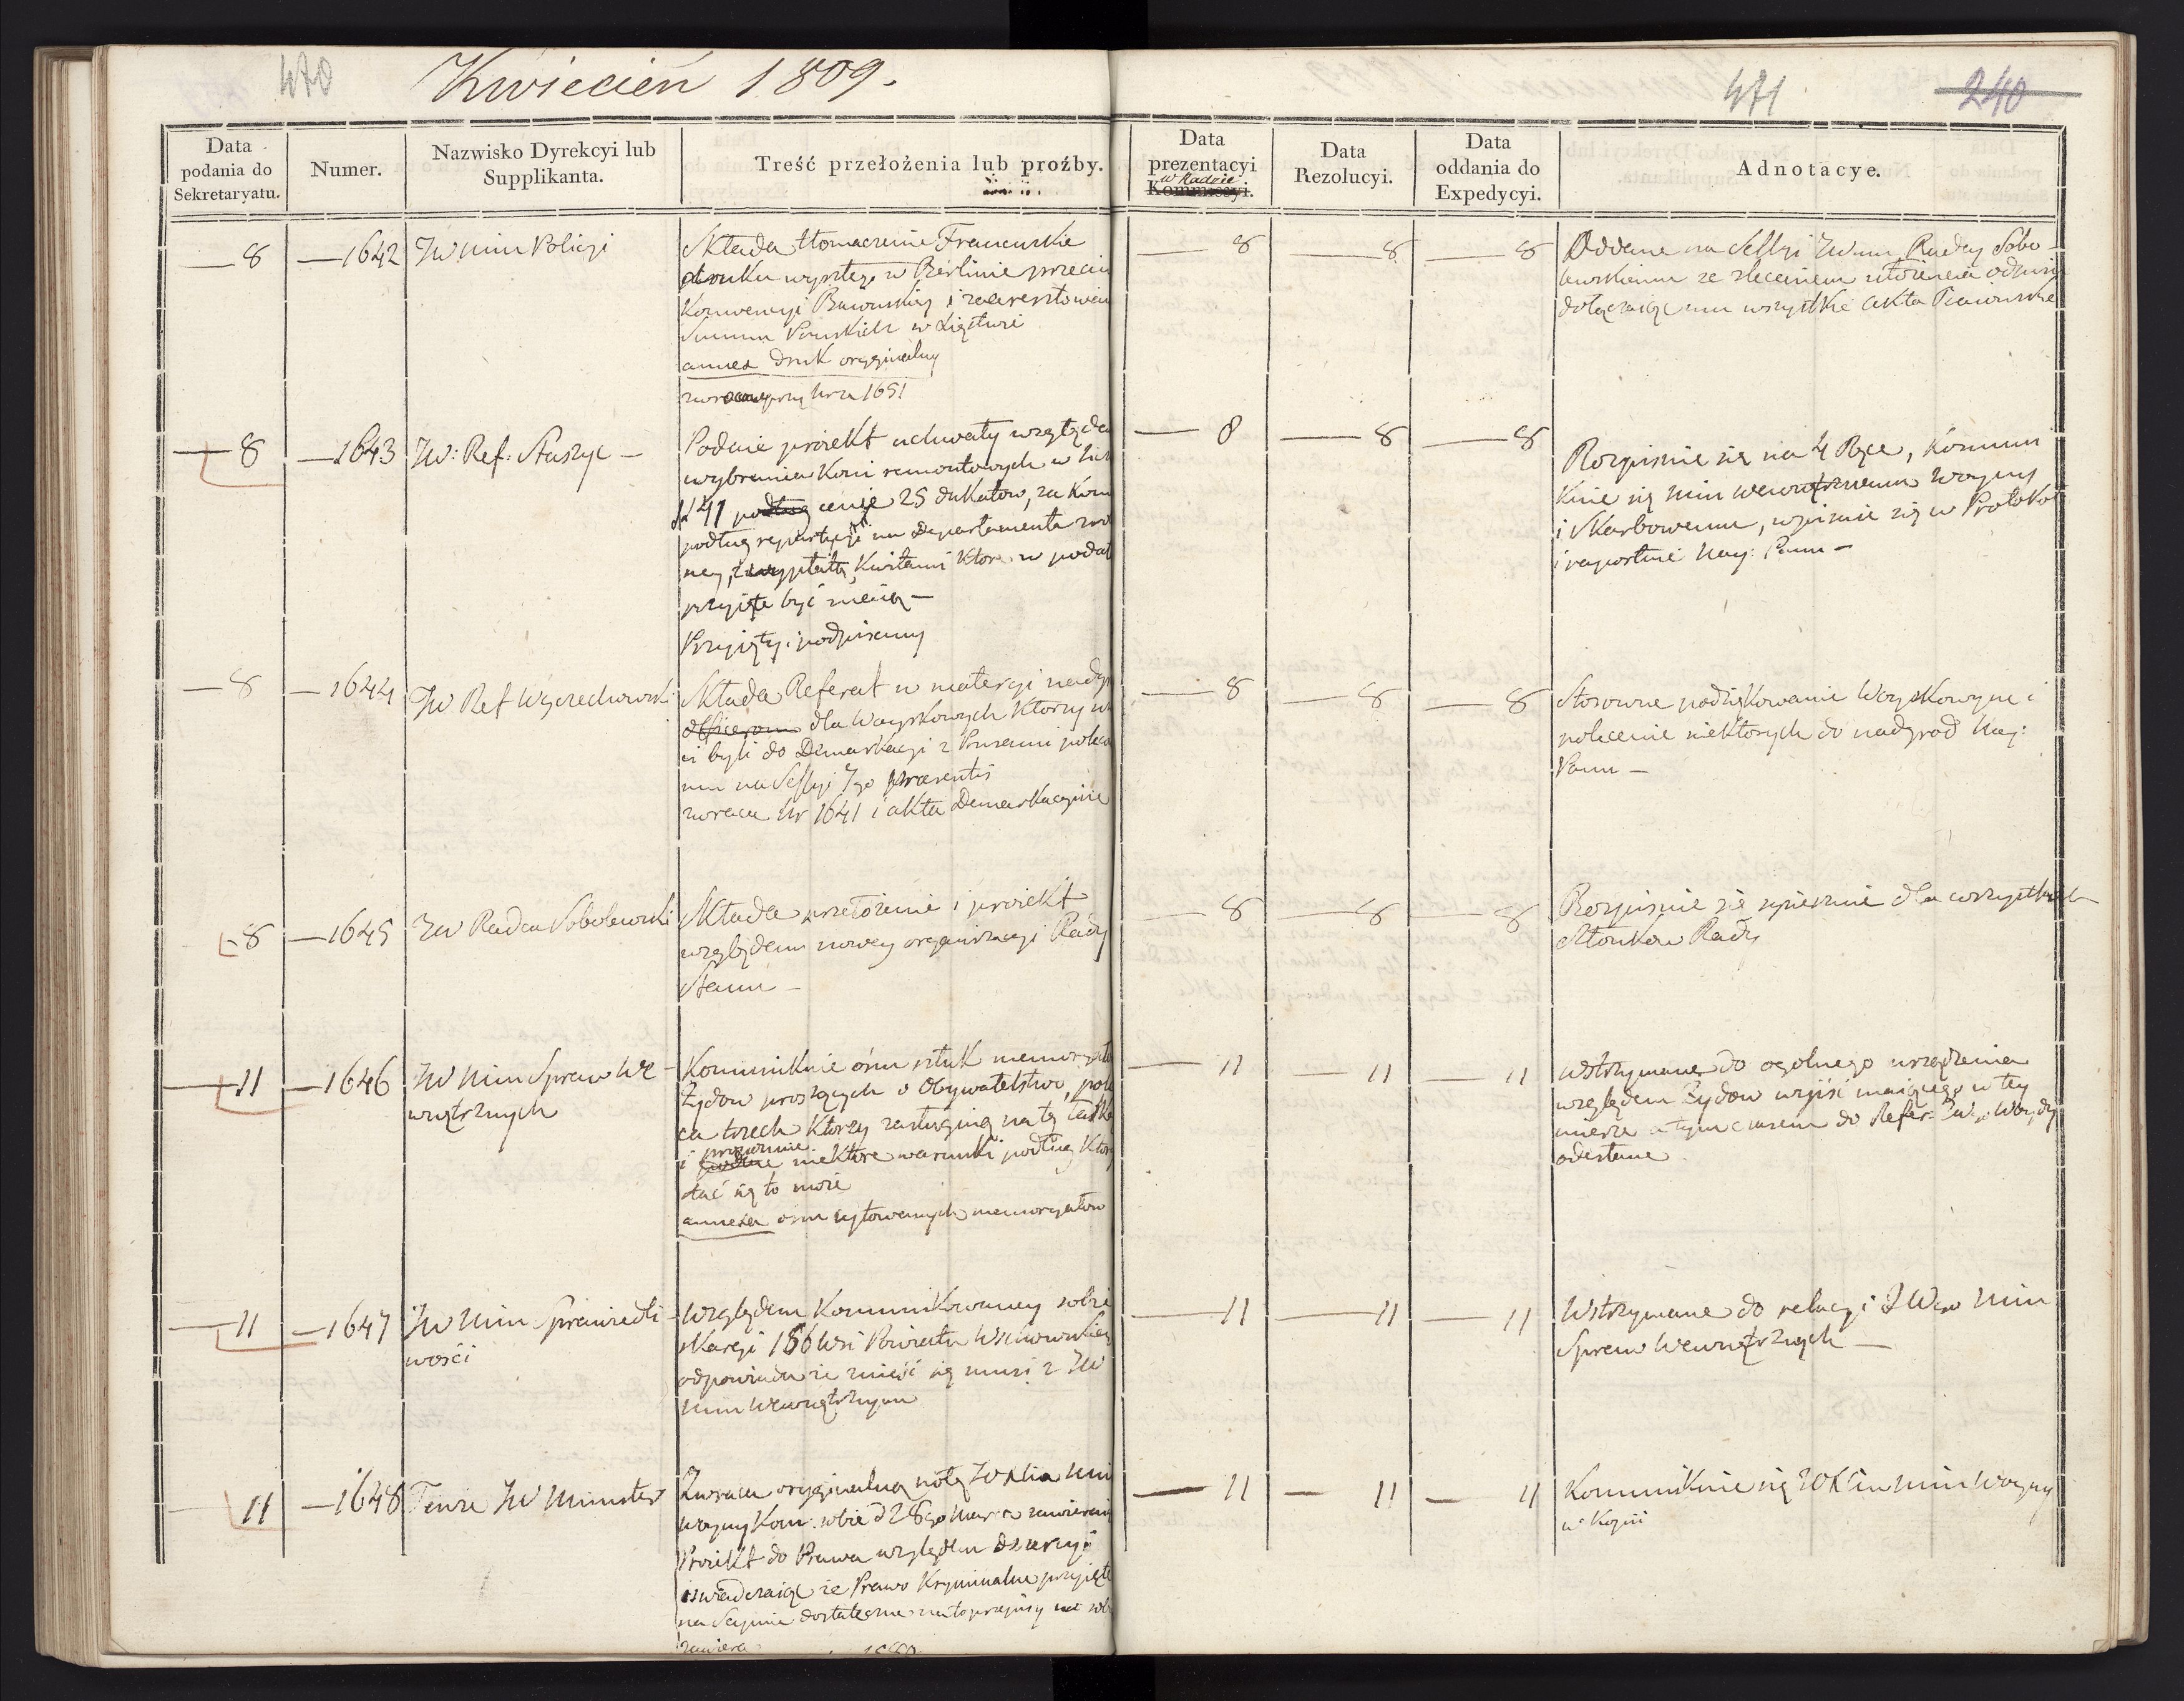 470
Kwiecień 1809.
471
240
Data podania do Sekretaryatu.
Numer.
Nazwisko Dyrekcyi lub Supplikanta.
Treść przełożenia lub proźby.
Data prezentacyi w Radzie Kommissyi.
Data Rezolucyi.
Data oddania do Expedycyi.
Adnotacye.
— 8 — 1642 JW Min Policyi
Składa tłomaczenie Francuskie
druku wyszłego w Berlinie przeciw
Konwencyi Bawońskiey i zaaresztowan
Summ Pruskich w Xięstwie
annex druk oryginalny
przy Nrze 1651
— 8 — 8 — 8
Oddane na Sessyi JWmu Radcy Sobo-
lewskiemu ze zleceniem ułożenia
dołączaiąc mu wszystkie akta
— 8 — 1643 JW: Ref: Staszyc —
Podaie proiekt uchwały względem
wybrania Koni remontowych w
podług cenie 25 dukatow, za
podług repartycyi na Departamenta
ney, Kwitami ktore w podat
przyięte być maią —
Przyięty i podpisany
— 8 — 8 — 8
Rozpisuie się na 4 Ręce, kommu
kuie się Min Wewnętrznemu Woyny
i Skarbowemu, wpisuie się w Protokoł
i raportuie Nay: Panu —
— 8 — 1644 JW Ref Węgrzechowski
Składa Referat w materyi
officerom dla Woyskowych ktorzy
ci byli do Demarkacyi z Prusami
na Sessyi 7go praesentis
zwraca Nr 1641 i akta Demarkacyine
— 8 — 8 — 8
Stosowne podziękowanie Woyskowym i
polecenie niektorych do nadgrod Nay:
Panu —
— 8 — 1645 JW Radca Sobolewski
Składa przełożenie i proiekt
względem nowey organizacyi Rady
Stanu —
— 8 — 8 — 8
Rozpisuie się spiesznie dla wszystkich
Członkow Rady
— 11 — 1646 JW Min Spraw We-
wnętrznych
Kommunikuie ośm sztuk memoryał
Żydow proszących o Obywatelstwo, pole
ca trzech ktorzy zasługuią na tę łaskę
i niektore warunki podług ktor
stać się to może
annexa osm cytowanych memoryałow
— 11 — 11 — 11
Wstrzymane do ogolnego urządzenia
względem Żydow wyiść maiącego w tey
mierze a tymczasem do Refer:
odesłane
— 11 — 1647 JW Min Sprawiedli-
wości
Względem Kommunikowaney sobie
skargi 186 Wsi Powiatu Wschowskiego
odpowiada że znieść się musi z JW
Min Wewnętrznym
— 11 — 11 — 11
Wstrzymane do relacyi JWgo Min
Spraw Wewnętrznych —
— 11 — 1648 Tenże JW Minister
Zwraca oryginalną notę Min
Woyny Kom: sobie d 28go Mar
Proiekt do Prawa względem dezercyi
oswiadczaiąc że Prawo Kryminalne przyięte
na Seymie dostateczne na to przepisy
zawiera
— 11 — 11 — 11
Kommunikuie się Min Woyny
w Kopii